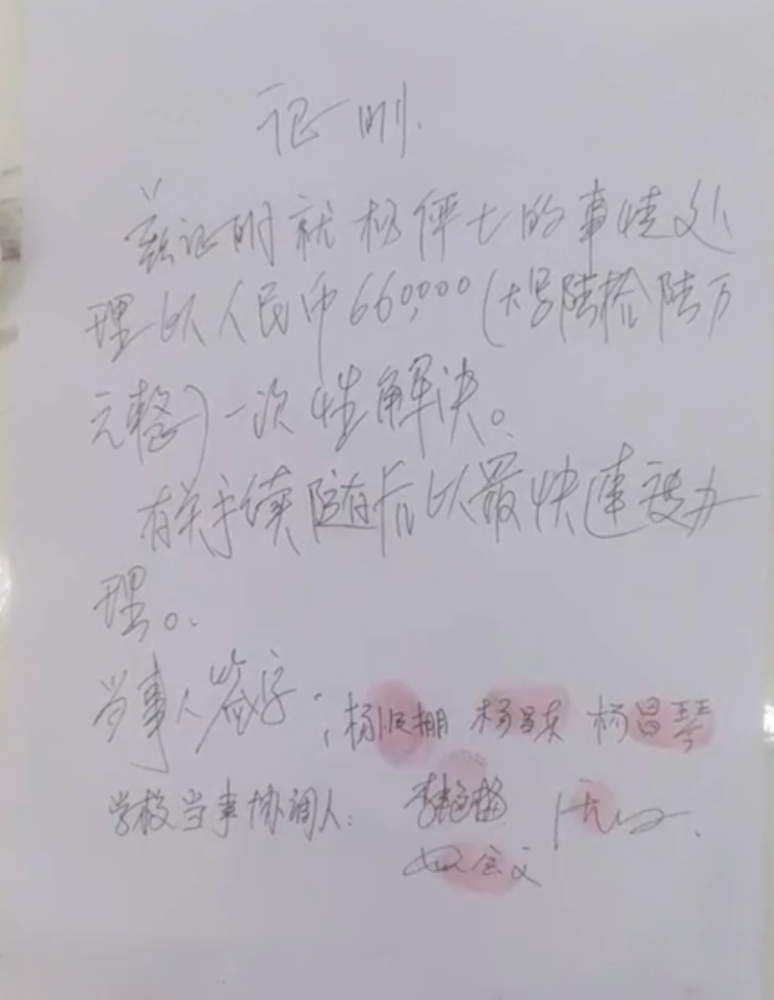 证明
兹证明就杨伻七的事情处
理以人民币660,000(大写陆拾陆万
元整)一次性解决。
有关手续随后以最快速度办
理。
当事人签字: 杨 杨昌英 杨昌琴
学校当事协调人: 李艳梅
会文